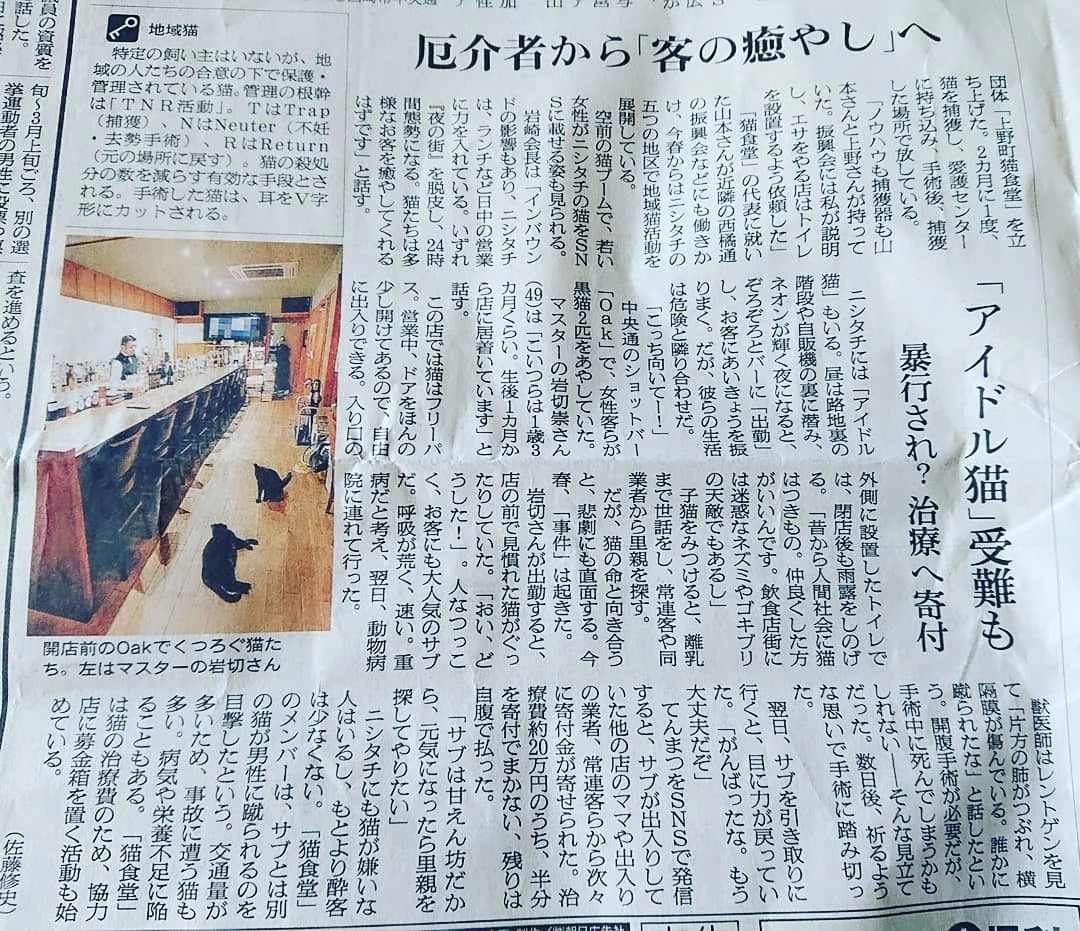 厄介者から「客の癒やし」へ
地域猫
特定の飼い主はいないが、地
域の人たちの合意の下で保護・
管理されている猫。管理の根幹
は「TNR活動」。TはTrap
(捕獲)、NはNeuter(不妊
・去勢手術)、RはReturn
(元の場所に戻す)。猫の殺処
分の数を減らす有効な手段とさ
れる。手術した猫は、耳をV字
形にカットされる。
団体「上野町猫食堂」を立
ち上げた。2カ月に1度、
猫を捕獲し、愛護センター
に持ち込み、手術後、捕獲
した場所で放している。
「ノウハウも捕獲器も山
本さんと上野さんが持って
いた。振興会には私が説明
し、エサをやる店はトイレ
を設置するよう依頼した」
「猫食堂」の代表に就い
た山本さんが近隣の西橘通
の振興会などにも働きか
け、今春からはニシタチの
五つの地区で地域猫活動を
展開している。
空前の猫ブームで、若い
女性がニシタチの猫をSN
Sに載せる姿も見られる。
岩崎会長は「インバウン
ドの影響もあり、ニシタチ
は、ランチなど日中の営業
に力を入れている。いずれ
『夜の街』を脱皮し、24時
間態勢になる。猫たちは多
様なお客を癒やしてくれる
はずです」と話す。
「アイドル猫」受難も
暴行され?治療へ寄付
ニシタチには「アイドル
猫」もいる。昼は路地裏の
階段や自販機の裏に潜み、
ネオンが輝く夜になると、
ぞろぞろとバーに「出勤」
し、お客にあいきょうを振
りまく。だが、彼らの生活
は危険と隣り合わせだ。
「こっち向いて!」
中央通のショットバー
「Oak」で、女性客らが
黒猫2匹をあやしていた。
マスターの岩切崇さん
(49)は「こいつらは1歳3
カ月くらい。生後1カ月か
ら店に居着いています」と
話す。
この店では猫はフリーパ
ス。営業中、ドアをほんの
少し開けてあるので、自由
に出入りできる。入り口の、
外側に設置したトイレで
は、閉店後も雨露をしのげ
る。「昔から人間社会に猫
はつきもの。仲良くした方
がいいんです。飲食店街に
は迷惑なネズミやゴキブリ
の天敵でもあるし」
子猫をみつけると、離乳
まで世話をし、常連客や同
業者から里親を探す。
だが、猫の命と向き合う
と、悲劇にも直面する。今
春、「事件」は起きた。
岩切さんが出勤すると、
店の前で見慣れた猫がぐっ
たりしていた。「おい、ど
うした!」。人なつっこ
く、お客にも大人気のサブ
だ。呼吸が荒く、速い。重
病だと考え、翌日、動物病
院に連れて行った。
獣医師はレントゲンを見
て「片方の肺がつぶれ、横
隔膜が傷んでいる。誰かに
蹴られたな」と話したとい
う。開腹手術が必要だが、
手術中に死んでしまうかも
しれない――そんな見立て
だった。数日後、祈るよう
な思いで手術に踏み切っ
た。
翌日、サブを引き取りに
行くと、目に力が戻ってい
た。「がんばったな。もう
大丈夫だぞ」
てんまつをSNSで発信
すると、サブが出入りして
いた他の店のママや出入り
の業者、常連客らから次々
に寄付金が寄せられた。治
療費約20万円のうち、半分
を寄付でまかない、残りは
自腹で払った。
「サブは甘えん坊だか
ら、元気になったら里親を
探してやりたい」
ニシタチにも猫が嫌いな
人はいるし、もとより酔客
は少なくない。「猫食堂」
のメンバーは、サブとは別
の猫が男性に蹴られるのを
目撃したという。交通量が
多いため、事故に遭う猫も
多い。病気や栄養不足に陥
ることもある。「猫食堂」
は猫の治療費のため、協力
店に募金箱を置く活動も始
めている。
(佐藤修史)
開店前のOakでくつろぐ猫た
ち。左はマスターの岩切さん
員の資質を
話した。
旬~3月上旬ごろ、別の選
挙運動者の男性に投票や票
査を進めるという。